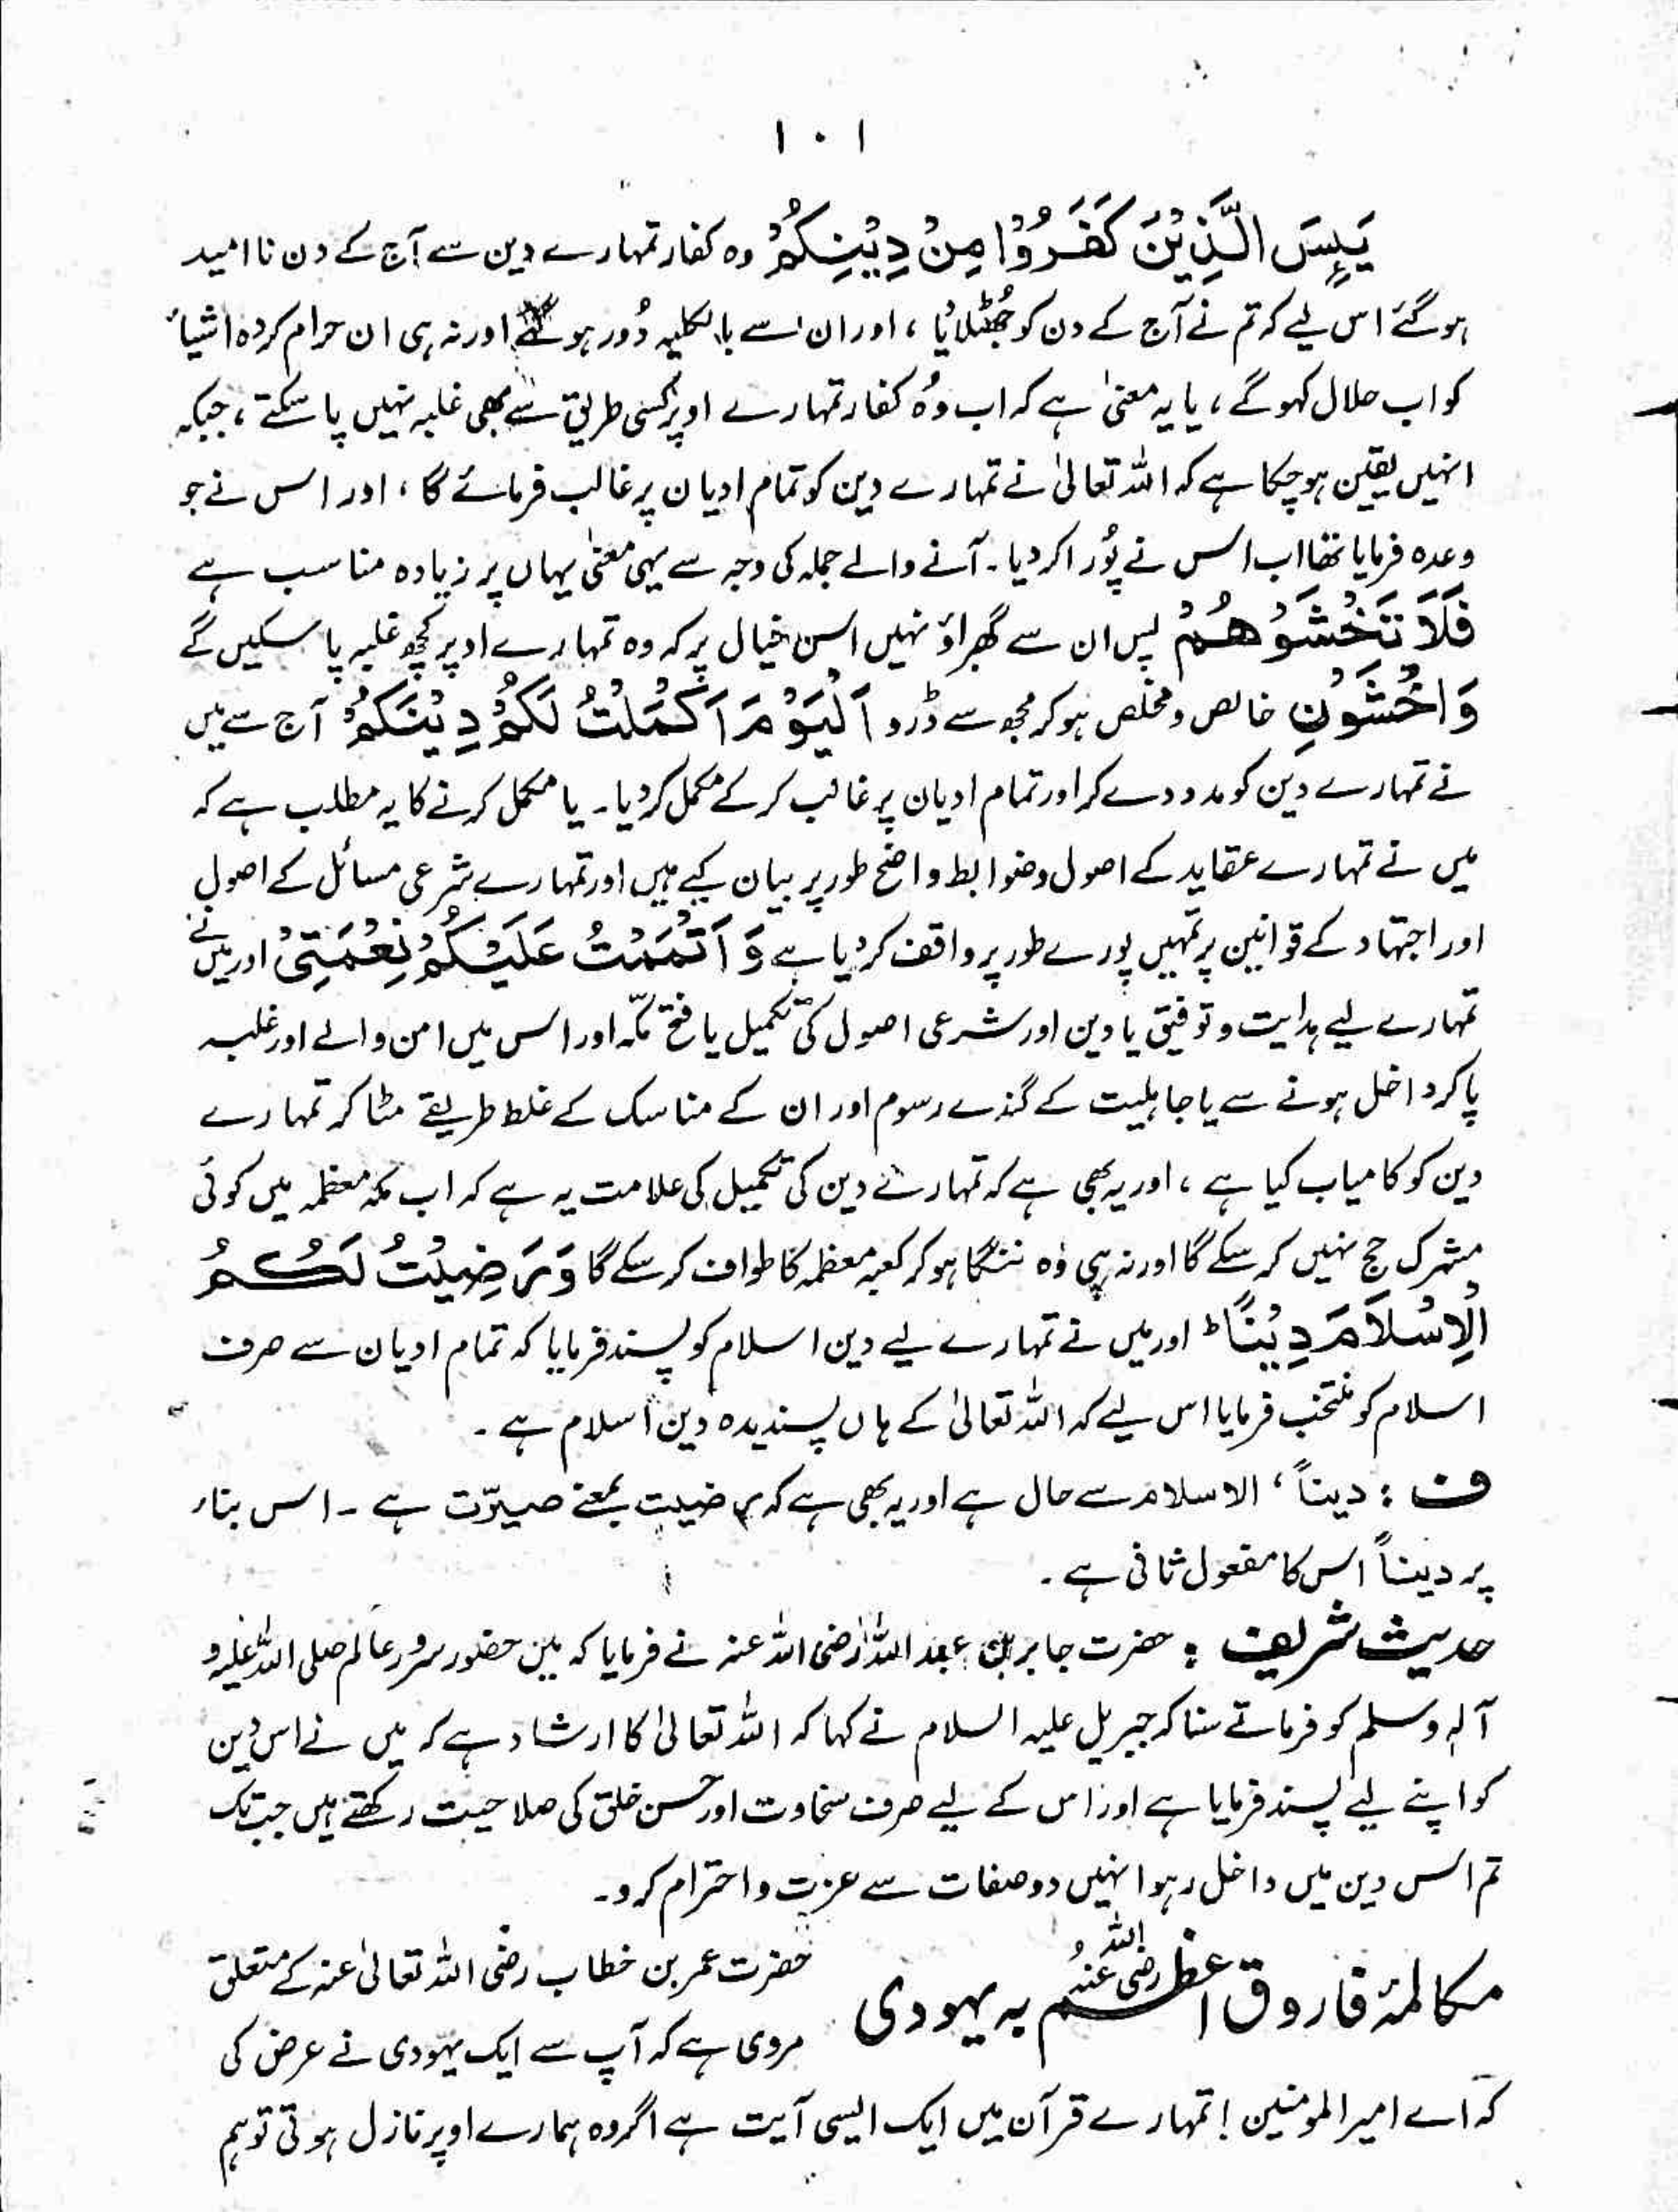 ۱۰۱
يَئِسَ الَّذِيْنَ كَفَرُوْا مِنْ دِيْنِكُمْ وہ کفار تمہارے دین سے آج کے دن نا امید
ہو گئے اس لیے کہ تم نے آج کے دن کو جھٹلایا ، اور ان سے بالکلیہ دُور ہو گئے اور نہ ہی ان حرام کردہ اشیاء
کو اب حلال کہو گے ، یا یہ معنیٰ ہے کہ اب وُہ کفار تمہارے اوپر کسی طریق سے بھی غلبہ نہیں پا سکتے ، جبکہ
انہیں یقین ہو چکا ہے کہ اللہ تعالیٰ نے تمہارے دین کو تمام ادیان پر غالب فرمائے گا ، اور اس نے جو
وعدہ فرمایا تھا اب اس نے پُورا کر دیا ۔ آنے والے جملہ کی وجہ سے یہی معنیٰ یہاں پر زیادہ مناسب ہے
فَلَا تَخْشَوْهُمْ پس ان سے گھبراؤ نہیں اس خیال پر کہ وہ تمہارے اوپر کچھ غلبہ پا سکیں گے
وَاخْشَوْنِ خالص و مخلص ہو کر مجھ سے ڈرو اَلْيَوْمَ اَكْمَلْتُ لَكُمْ دِيْنَكُمْ آج سے میں
نے تمہارے دین کو مدد دے کر اور تمام ادیان پر غالب کر کے مکمل کر دیا ۔ یا مکمل کرنے کا یہ مطلب ہے کہ
میں نے تمہارے عقاید کے اصول و ضوابط واضح طور پر بیان کیے ہیں اور تمہارے شرعی مسائل کے اصول
اور اجتہاد کے قوانین پر تمہیں پورے طور پر واقف کر دیا ہے وَ اَتْمَمْتُ عَلَيْكُمْ نِعْمَتِيْ اور میں نے
تمہارے لیے ہدایت و توفیق یا دین اور شرعی اصول کی تکمیل یا فتح مکّہ اور اس میں امن والے اور غلبہ
پا کر داخل ہونے سے یا جاہلیت کے گندے رسوم اور ان کے مناسک کے غلط طریقے مٹا کر تمہارے
دین کو کامیاب کیا ہے ، اور یہ بھی ہے کہ تمہارے دین کی تکمیل کی علامت یہ ہے کہ اب مکہ معظمہ میں کوئی
مشرک حج نہیں کر سکے گا اور نہ ہی وُہ ننگا ہو کر کعبہ معظمہ کا طواف کر سکے گا وَرَضِيْتُ لَكُمُ
الْاِسْلَامَ دِيْنًا ؕ اور میں نے تمہارے لیے دین اسلام کو پسند فرمایا کہ تمام ادیان سے صرف
اسلام کو منتخب فرمایا اس لیے کہ اللہ تعالیٰ کے ہاں پسندیدہ دین اسلام ہے ۔
ف : دیناً ، الاسلام سے حال ہے اور یہ بھی ہے کہ رضیت بمعنے صیرّت ہے ۔ اس بناء
پر دیناً اس کا مفعول ثانی ہے ۔
حدیث شریف : حضرت جابر بن عبد اللہ رضی اللہ عنہ نے فرمایا کہ میں حضور سرور عالم صلی اللہ علیہ و
آلہٖ وسلم کو فرماتے سنا کہ جبریل علیہ السلام نے کہا کہ اللہ تعالیٰ کا ارشاد ہے کہ میں نے اس دین
کو اپنے لیے پسند فرمایا ہے اور اس کے لیے صرف سخاوت اور حسن خلق کی صلاحیت رکھتے ہیں جب تک
تم اس دین میں داخل رہو انہیں دو صفات سے عزت و احترام کرو ۔
مکالمۂ فاروق اعظم رضی اللہ عنہُ بہ یہودی
حضرت عمر بن خطاب رضی اللہ تعالیٰ عنہ کے متعلق
مروی ہے کہ آپ سے ایک یہودی نے عرض کی
کہ اے امیر المومنین ! تمہارے قرآن میں ایک ایسی آیت ہے اگر وہ ہمارے اوپر نازل ہوتی تو ہم